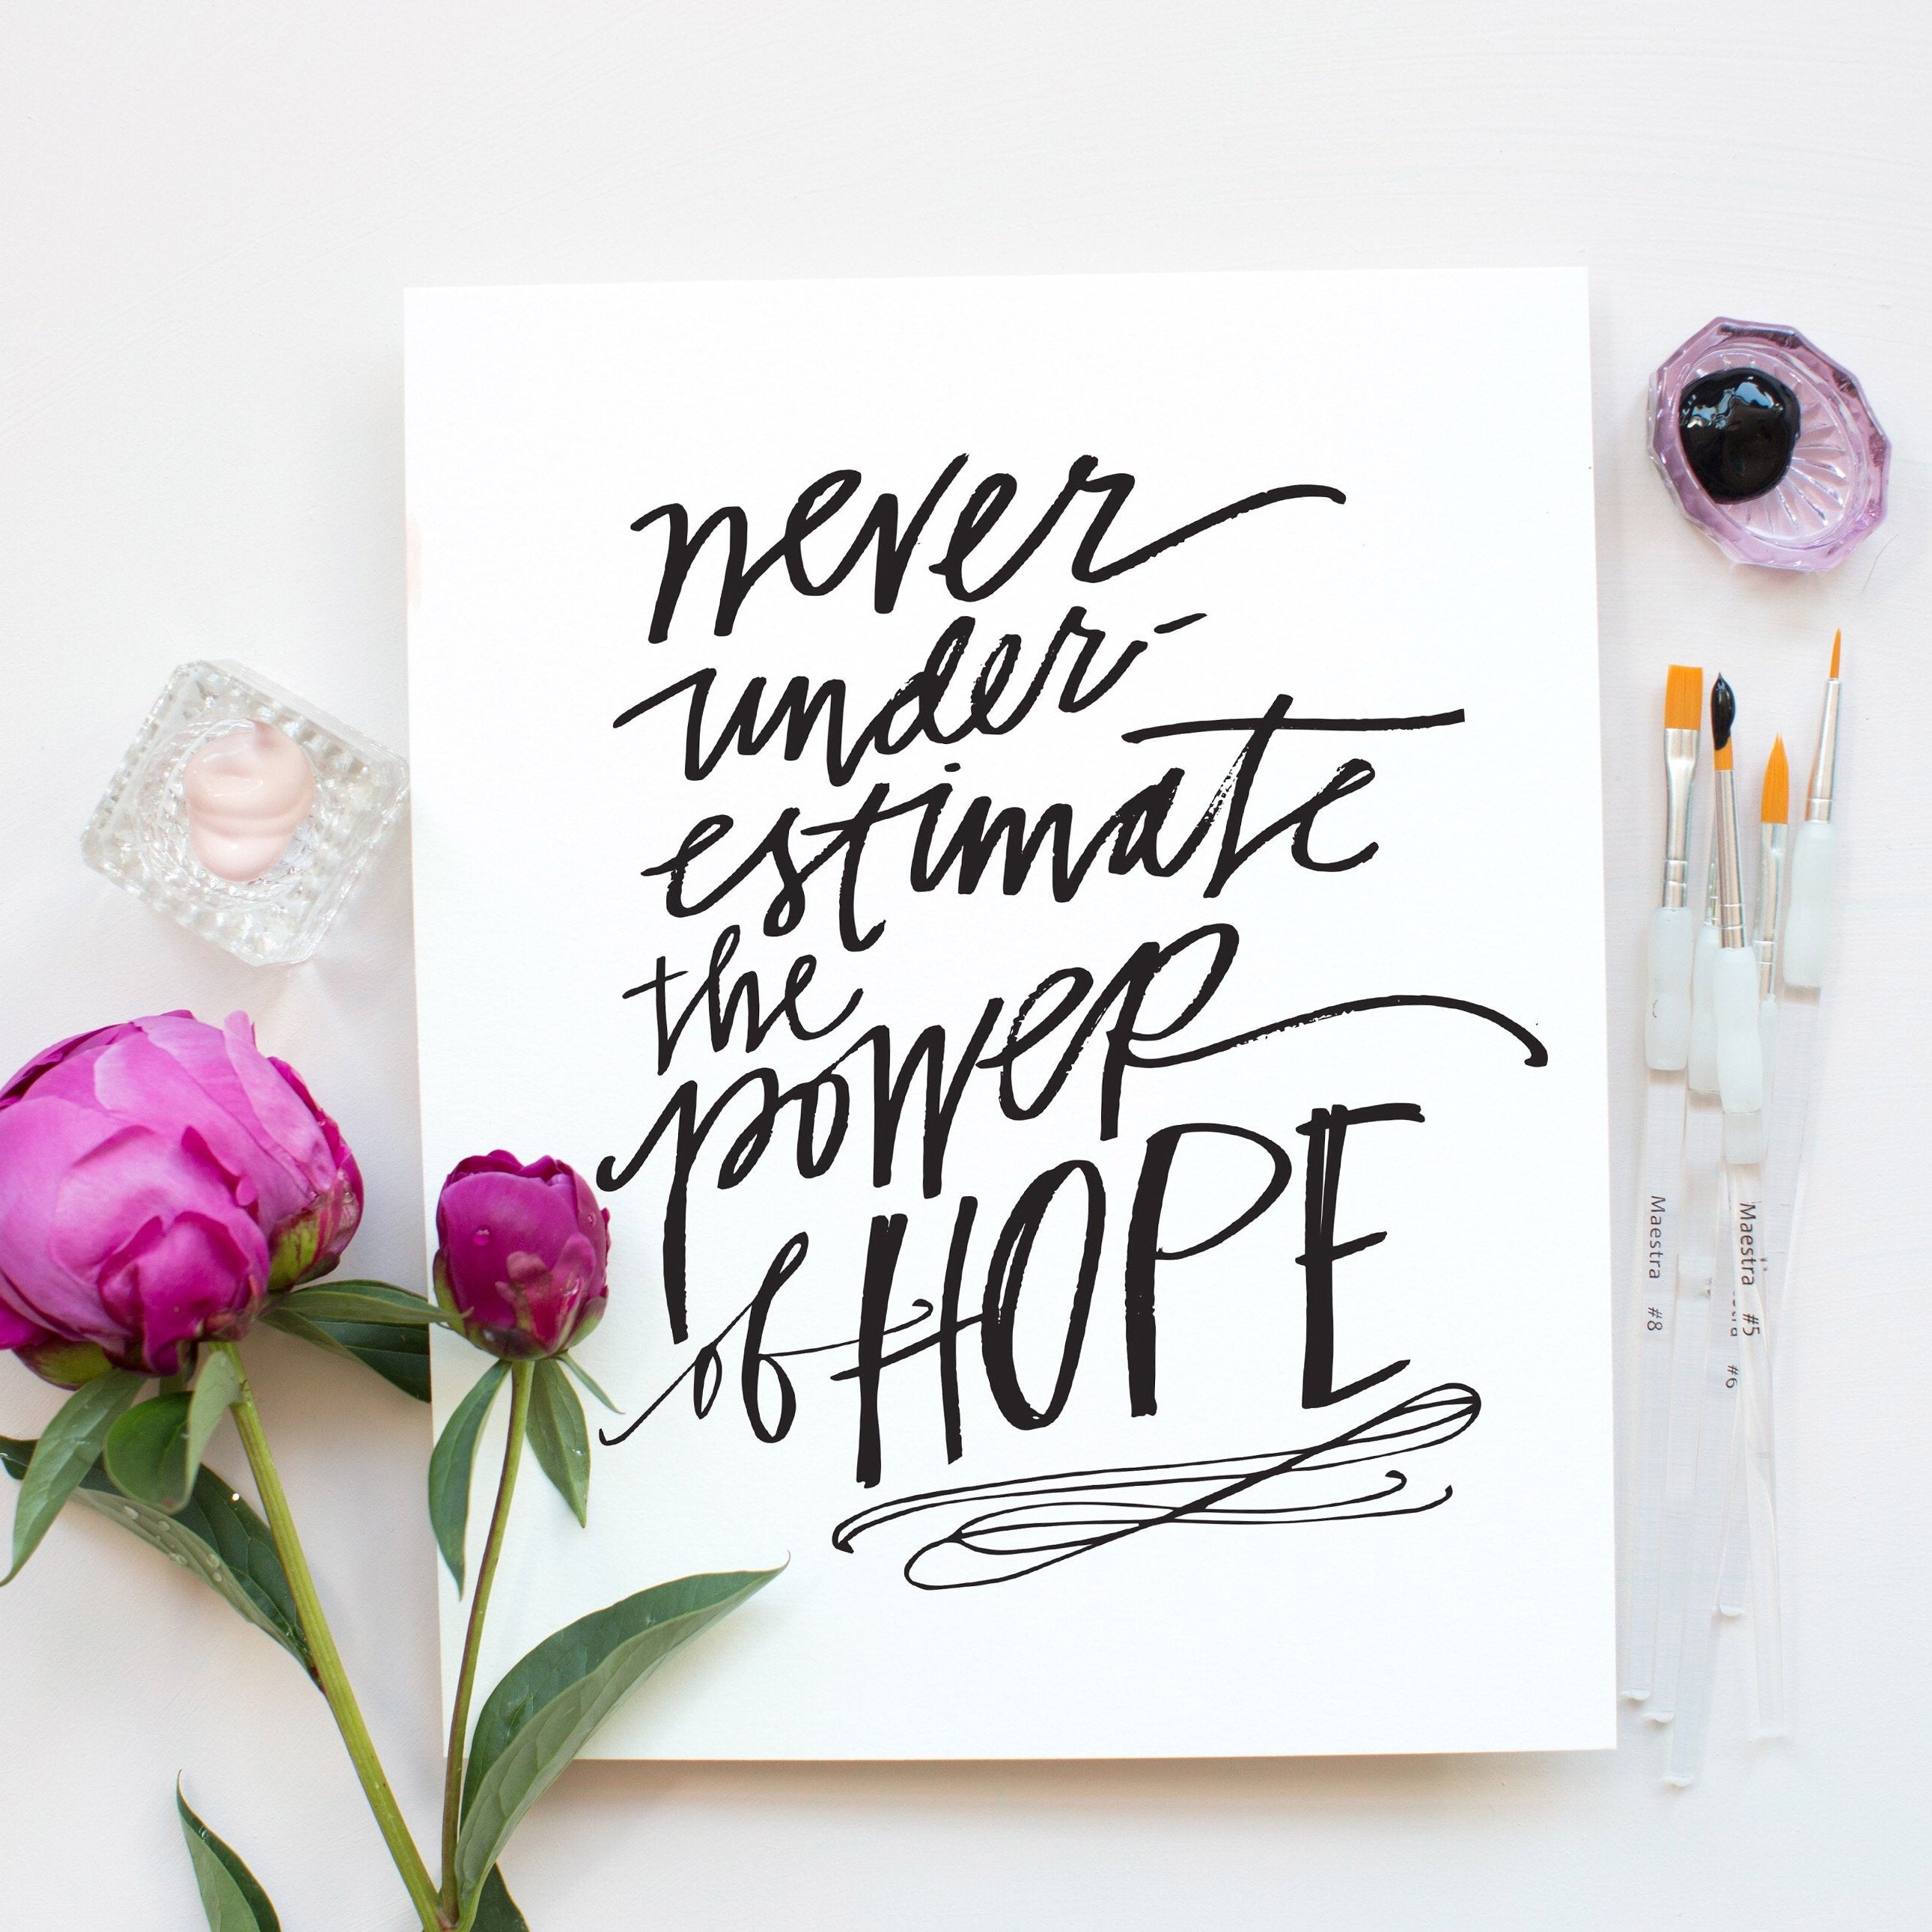 never
under-
estimate
the
power
of HOPE
Maestra #8
Maestra #5
#6